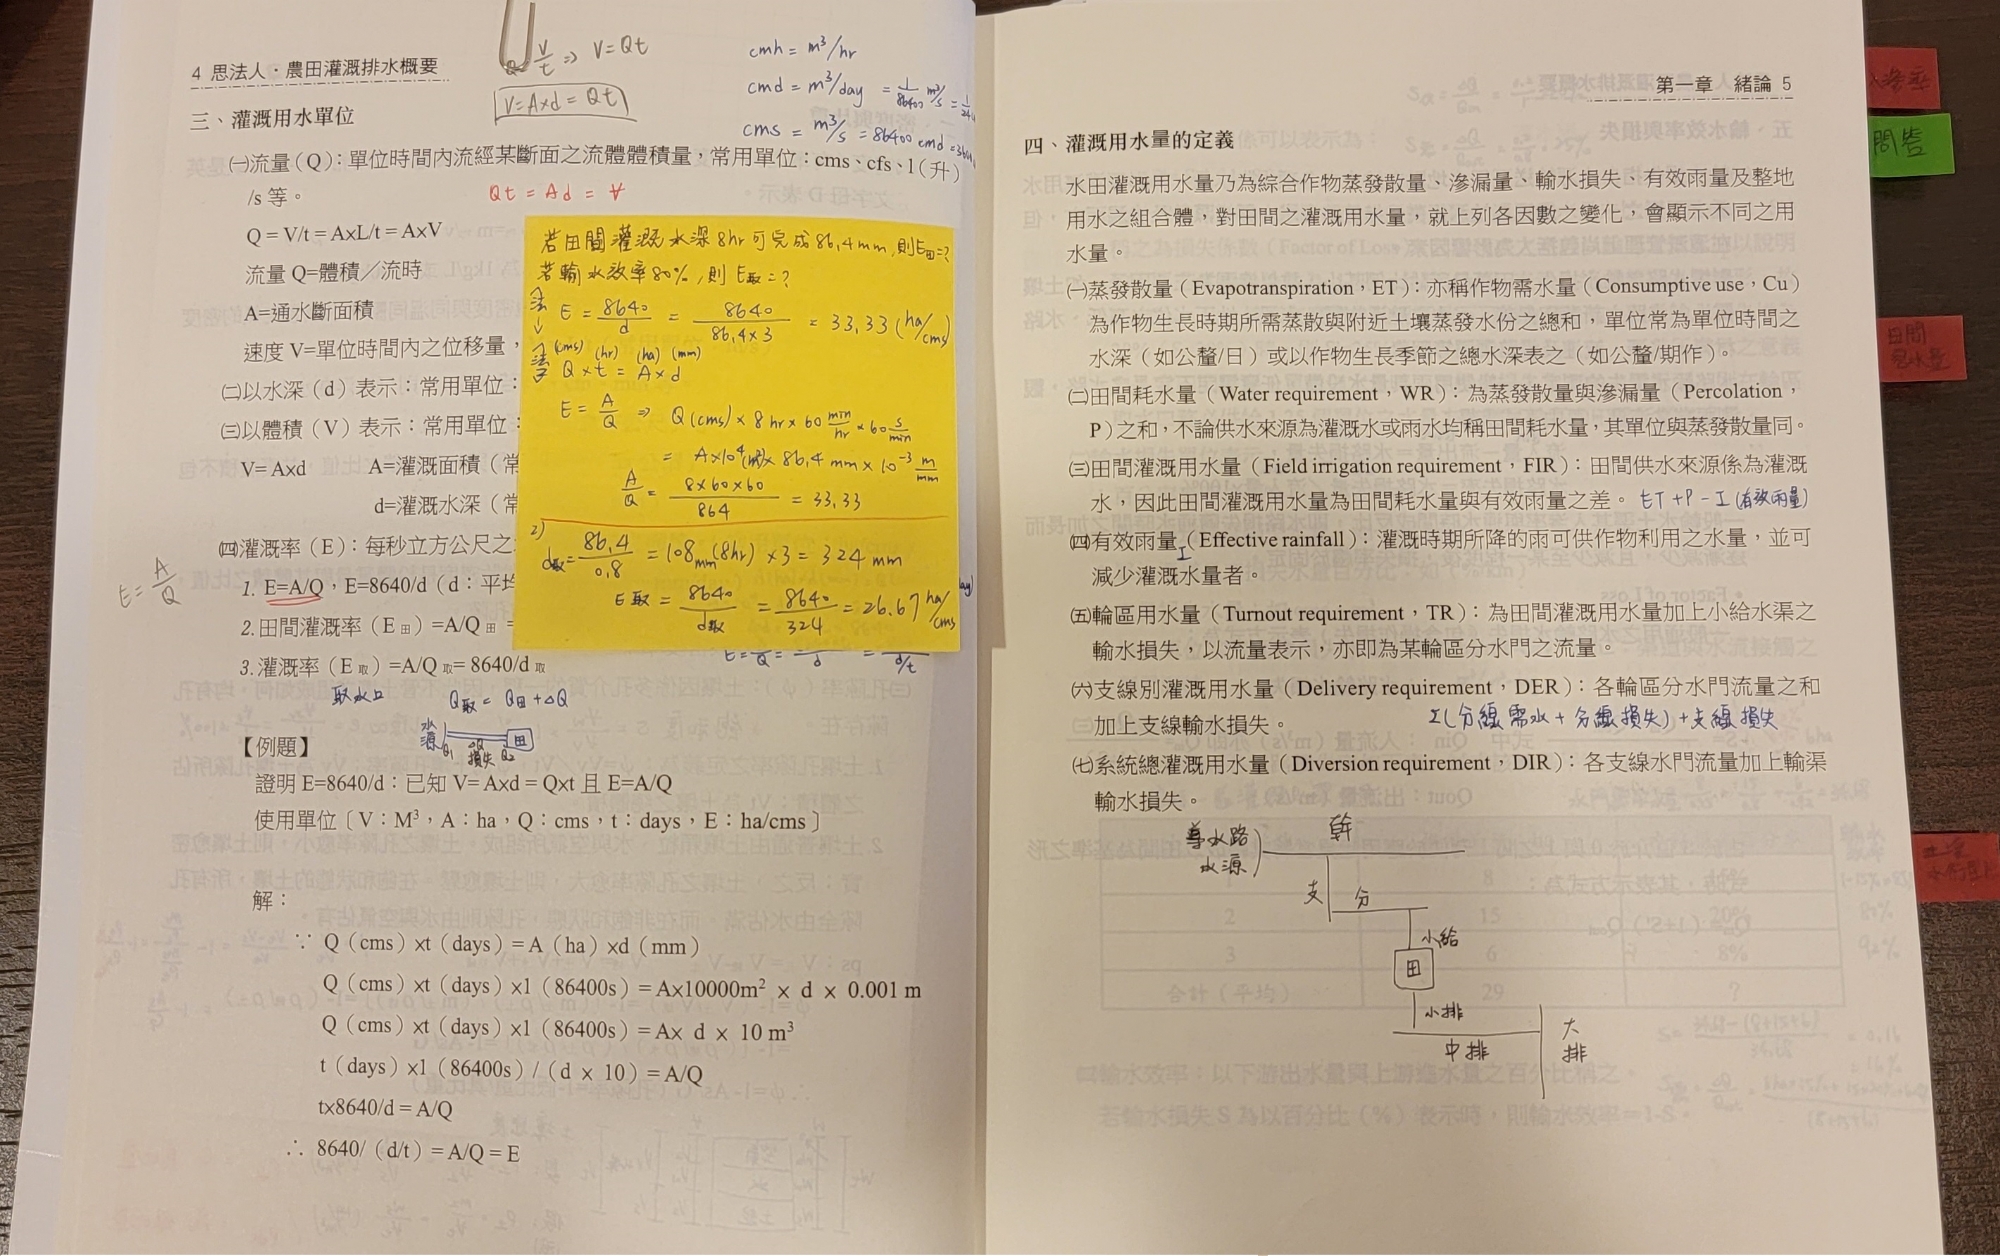 4 思法人・農田灌溉排水概要
Q V/t ⇒ V=Qt
V=A×d = Qt
cmh = m³/hr
cmd = m³/day = 1/86400 m³/s
cms = m³/s = 86400 cmd
三、灌溉用水單位
㈠流量(Q):單位時間內流經某斷面之流體體積量,常用單位:cms、cfs、l(升)
/s 等。
Qt = Ad = V
Q = V/t = AxL/t = AxV
流量 Q=體積／流時
A=通水斷面積
速度 V=單位時間內之位移量,
㈡以水深(d)表示:常用單位:
㈢以體積(V)表示:常用單位:
V= Axd A=灌溉面積(常
d=灌溉水深(常
㈣灌溉率(E):每秒立方公尺之
E = A/Q
1. E=A/Q,E=8640/d(d:平均
2.田間灌溉率(E 田)=A/Q 田 =
3.灌溉率(E 取)=A/Q 取= 8640/d 取
取水口 Q取 = Q田 + ΔQ
水源 Q1 ΔQ 損失 Q2 田
若田間灌溉水深8hr可完成86.4mm,則E田=?
若輸水效率80%,則 E取=?
E = 8640/d = 8640/(86.4×3) = 33.33 (ha/cms)
(cms) (hr) (ha) (mm)
Q × t = A × d
E = A/Q ⇒ Q(cms) × 8 hr × 60 min/hr × 60 s/min
= A×10⁴(m²)× 86.4 mm × 10⁻³ m/mm
A/Q = 8×60×60/864 = 33.33
2)
d取 = 86.4/0.8 = 108mm (8hr) ×3 = 324 mm
E取 = 8640/d取 = 8640/324 = 26.67 ha/cms
【例題】
證明 E=8640/d:已知 V= Axd = Qxt 且 E=A/Q
使用單位〔V:M³,A:ha,Q:cms,t:days,E:ha/cms〕
解:
∵ Q(cms)xt(days)= A(ha)xd(mm)
Q(cms)xt(days)x1(86400s)= Ax10000m² x d x 0.001 m
Q(cms)xt(days)x1(86400s)= Ax d x 10 m³
t(days)x1(86400s)/(d x 10)= A/Q
tx8640/d = A/Q
∴ 8640/(d/t)= A/Q = E
第一章 緒論 5
四、灌溉用水量的定義
水田灌溉用水量乃為綜合作物蒸發散量、滲漏量、輸水損失、有效雨量及整地
用水之組合體,對田間之灌溉用水量,就上列各因數之變化,會顯示不同之用
水量。
㈠蒸發散量(Evapotranspiration,ET):亦稱作物需水量(Consumptive use,Cu)
為作物生長時期所需蒸散與附近土壤蒸發水份之總和,單位常為單位時間之
水深(如公釐/日)或以作物生長季節之總水深表之(如公釐/期作)。
㈡田間耗水量(Water requirement,WR):為蒸發散量與滲漏量(Percolation,
P)之和,不論供水來源為灌溉水或雨水均稱田間耗水量,其單位與蒸發散量同。
㈢田間灌溉用水量(Field irrigation requirement,FIR):田間供水來源係為灌溉
水,因此田間灌溉用水量為田間耗水量與有效雨量之差。 ET + P - I (有效雨量)
㈣有效雨量 I(Effective rainfall):灌溉時期所降的雨可供作物利用之水量,並可
減少灌溉水量者。
㈤輪區用水量(Turnout requirement,TR):為田間灌溉用水量加上小給水渠之
輸水損失,以流量表示,亦即為某輪區分水門之流量。
㈥支線別灌溉用水量(Delivery requirement,DER):各輪區分水門流量之和
加上支線輸水損失。 Σ(分線需水 + 分線損失) + 支線損失
㈦系統總灌溉用水量(Diversion requirement,DIR):各支線水門流量加上輸渠
輸水損失。
導水路 幹
水源
支 分
小給
田
小排
中排
大排
田間